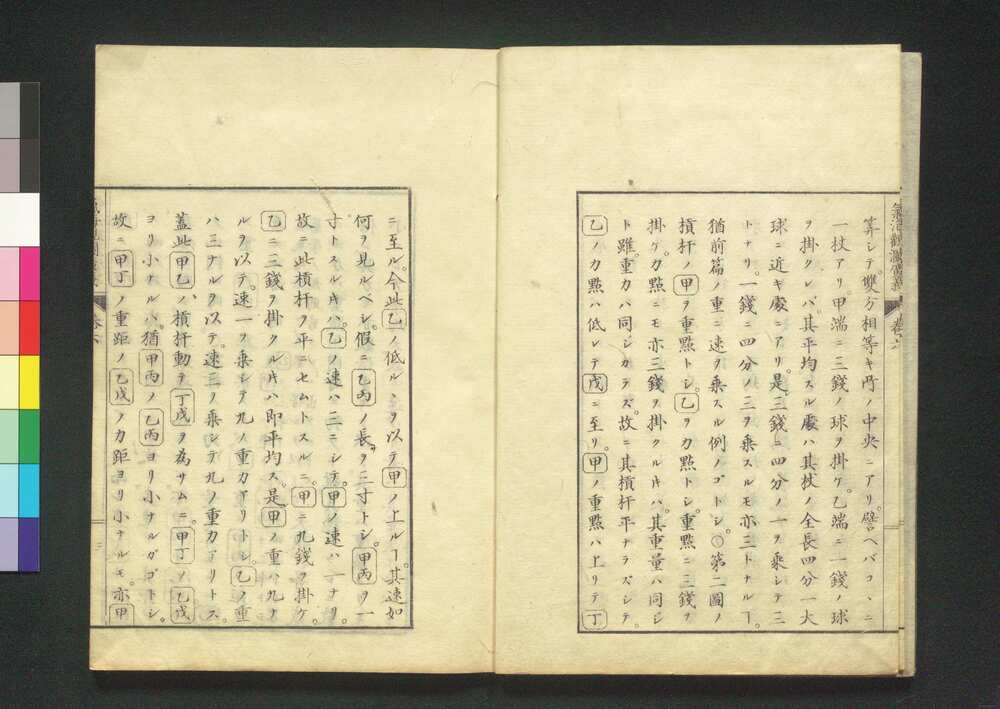 算シテ。雙方相等キ所ノ中央ニアリ。譬ヘバコヽニ
一杖アリ。甲端ニ三錢ノ球ヲ掛ケ。乙端ニ一錢ノ球
ヲ掛クレバ。其平均スル處ハ其杖ノ全長四分一大
球ニ近キ處ニアリ。是三錢ニ四分ノ一ヲ乘シテ三
トナリ。一錢ニ四分ノ三ヲ乘スルモ亦三トナルヿ。
猶前篇ノ重ニ速ヲ乘スル例ノゴトシ。○第二圖ノ
槓杆ノ甲ヲ重點トシ。乙ヲ力點トシ。重點ニ三錢ヲ
掛ケ。力點ニモ亦三錢ヲ掛クル片ハ。其重量ハ同シ
ト雖。重力ハ同シカラズ。故ニ其槓杆平ナラズシテ。
乙ノ力點ハ低レテ戊ニ至リ。甲ノ重點ハ上リテ丁
氣海觀瀾廣義 卷六
ニ至ル。今此乙ノ低ルヽヲ以テ甲ノ上ルヿ。其速如
何ヲ見ルベシ。假ニ乙丙ノ長ヲ三寸トシ。甲丙ヲ一
寸トスル片ハ。乙ノ速ハ三ニシテ。甲ノ速ハ一ナリ。
故ニ此槓杆ヲ平ニセムトスルニ。甲ニ九錢ヲ掛ケ。
乙ニ三錢ヲ掛クル片ハ即平均ス。是甲ノ重ハ九ナ
ルヲ以テ。速一ヲ乘シテ九ノ重力アリトシ。乙ノ重
ハ三ナルヲ以テ。速三ヲ乘シテ九ノ重力アリトス。
蓋此甲乙ノ槓杆動テ丁戊ヲ為サムニ。甲丁ノ乙戊
ヨリ小ナルハ。猶甲丙ノ乙丙ヨリ小ナルガゴトシ。
故ニ甲丁ノ重距ノ乙戊ノ力距ヨリ小ナルモ。亦甲
卷六